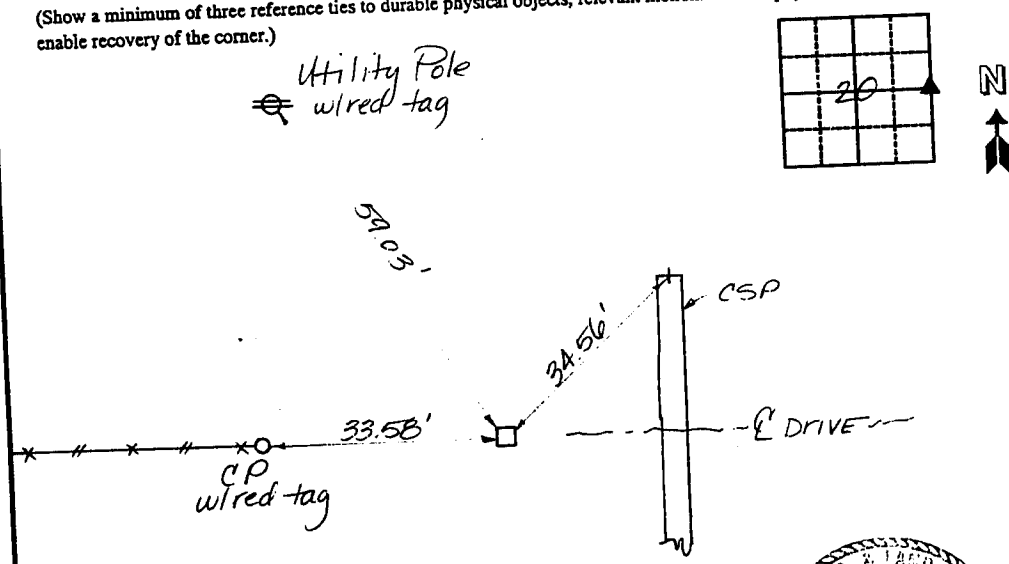 (Show a minimum of three reference ties to durable physical objects,
enable recovery of the corner.)
Utility Pole
w/red tag
20
N
59.03'
CSP
34.56'
33.58'
℄ DRIVE
CP
w/red tag